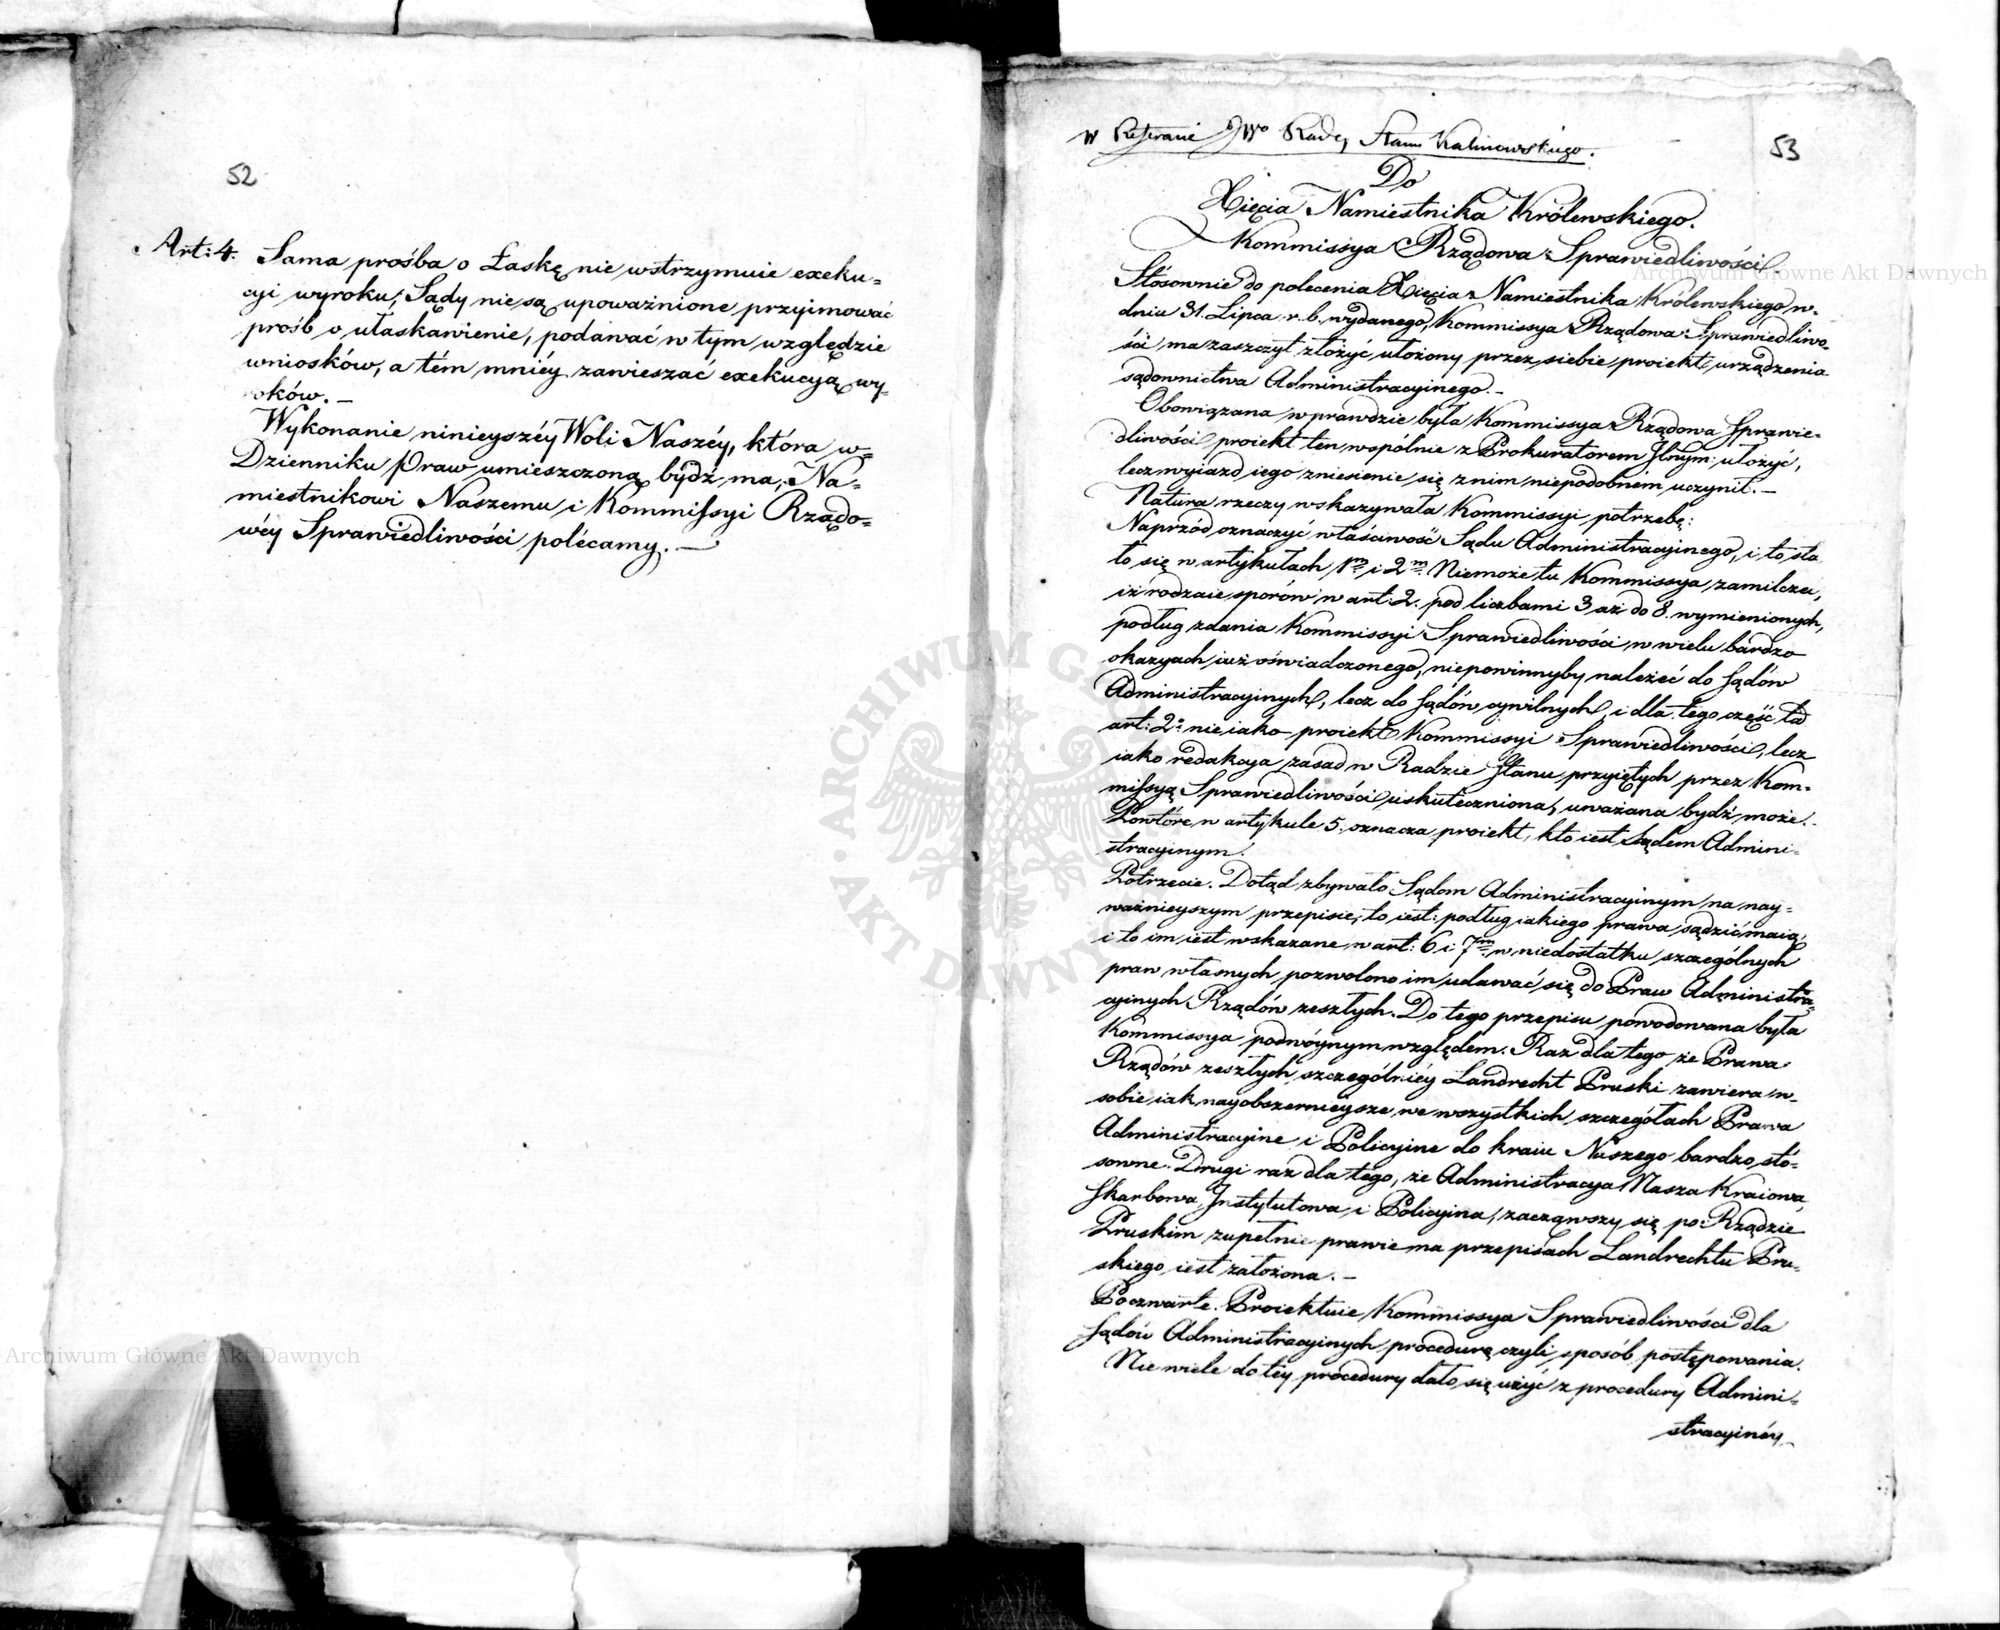 52
Art: 4. Sama prośba o Łaskę nie wstrzymuie exeku=
cyi wyroku; Sądy nie są upoważnione przyimować
prośb o ułaskawienie, podawać w tym względzie
wniosków, a tém mniéy zawieszać exekucyą wy=
roków. –
Wykonanie ninieyszéy Woli Naszéy, która w=
Dzienniku Praw umieszczoną bydź ma, Na=
miestnikowi Naszemu i Kommissyi Rządo=
wéy Sprawiedliwości polécamy. –
53
w Referacie JWo Radcy Stanu Kalinowskiego.
Do
Xięcia Namiestnika Królewskiego.
Kommissya Rządowa Sprawiedliwości
Stósownie do polecenia Xięcia Namiestnika Królewskiego w=
dniu 31. Lipca r. b. wydanego, Kommissya Rządowa Sprawiedliwo=
ści ma zaszczyt złożyć ułożony przez siebie proiekt urządzenia
sądownictwa Administracyinego. –
Obowiązana wprawdzie była Kommissya Rządowa Sprawie=
dliwości proiekt ten wspólnie z Prokuratorem Jlnym: ułożyć,
lecz wyiazd iego zniesienie się z nim niepodobnem uczynił. –
Natura rzeczy wskazywała Kommissyi potrzebę:
Naprzód oznaczyć właściwość Sądu Administracyinego, i to sta
ło się w artykułach 1m i 2m. Niemoże tu Kommissya zamilczeć,
iż rodzaie sporów w art: 2. pod liczbami 3 aż do 8. wymienionych,
podług zdania Kommissyi Sprawiedliwości w wielu bardzo
okazyach iuż oświadczonego, niepowinnyby należeć do Sądów
Administracyinych, lecz do Sądów cywilnych, i dla tego część ta
art: 2o nie iako proiekt Kommissyi Sprawiedliwości, lecz
iako redakcya zasad w Radzie Stanu przyiętych przez Kom=
missyą Sprawiedliwości uskuteczniona, uważana bydź może. –
Powtóre w artykule 5. oznacza proiekt, kto iest Sądem Admini=
stracyinym.
Potrzecie. Dotąd zbywało Sądom Administracyinym na nay=
ważnieyszym przepisie, to iest: podług iakiego prawa sądzić maią,
i to im iest wskazane w art: 6 i 7m w niedostatku szczególnych
praw własnych pozwolono im udawać się do Praw Administra
cyinych Rządów zeszłych. Do tego przepisu powodowana była
Kommissya podwóynym względem. Raz dla tego że Prawa
Rządów zeszłych, szczególniéy Landrecht Pruski zawiera w=
sobie iak nayobszernieysze, we wszystkich szczegółach Prawa
Administracyine i Policyine do kraiu Naszego bardzo stó=
sowne. Drugi raz dla tego, że Administracya Nasza Kraiowa,
Skarbowa, Instytutowa, i Policyina, zacząwszy się po Rządzie
Pruskim zupełnie prawie na przepisach Landrechtu Pru=
skiego iest założona. –
Poczwarte. Proiektuie Kommissya Sprawiedliwości dla
Sądów Administracyinych procedurę czyli sposób postępowania.
Nie wiele do téy procedury dało się użyć z procedury Admini=
stracyinéy
Archiwum Główne Akt Dawnych
Archiwum Główne Akt Dawnych